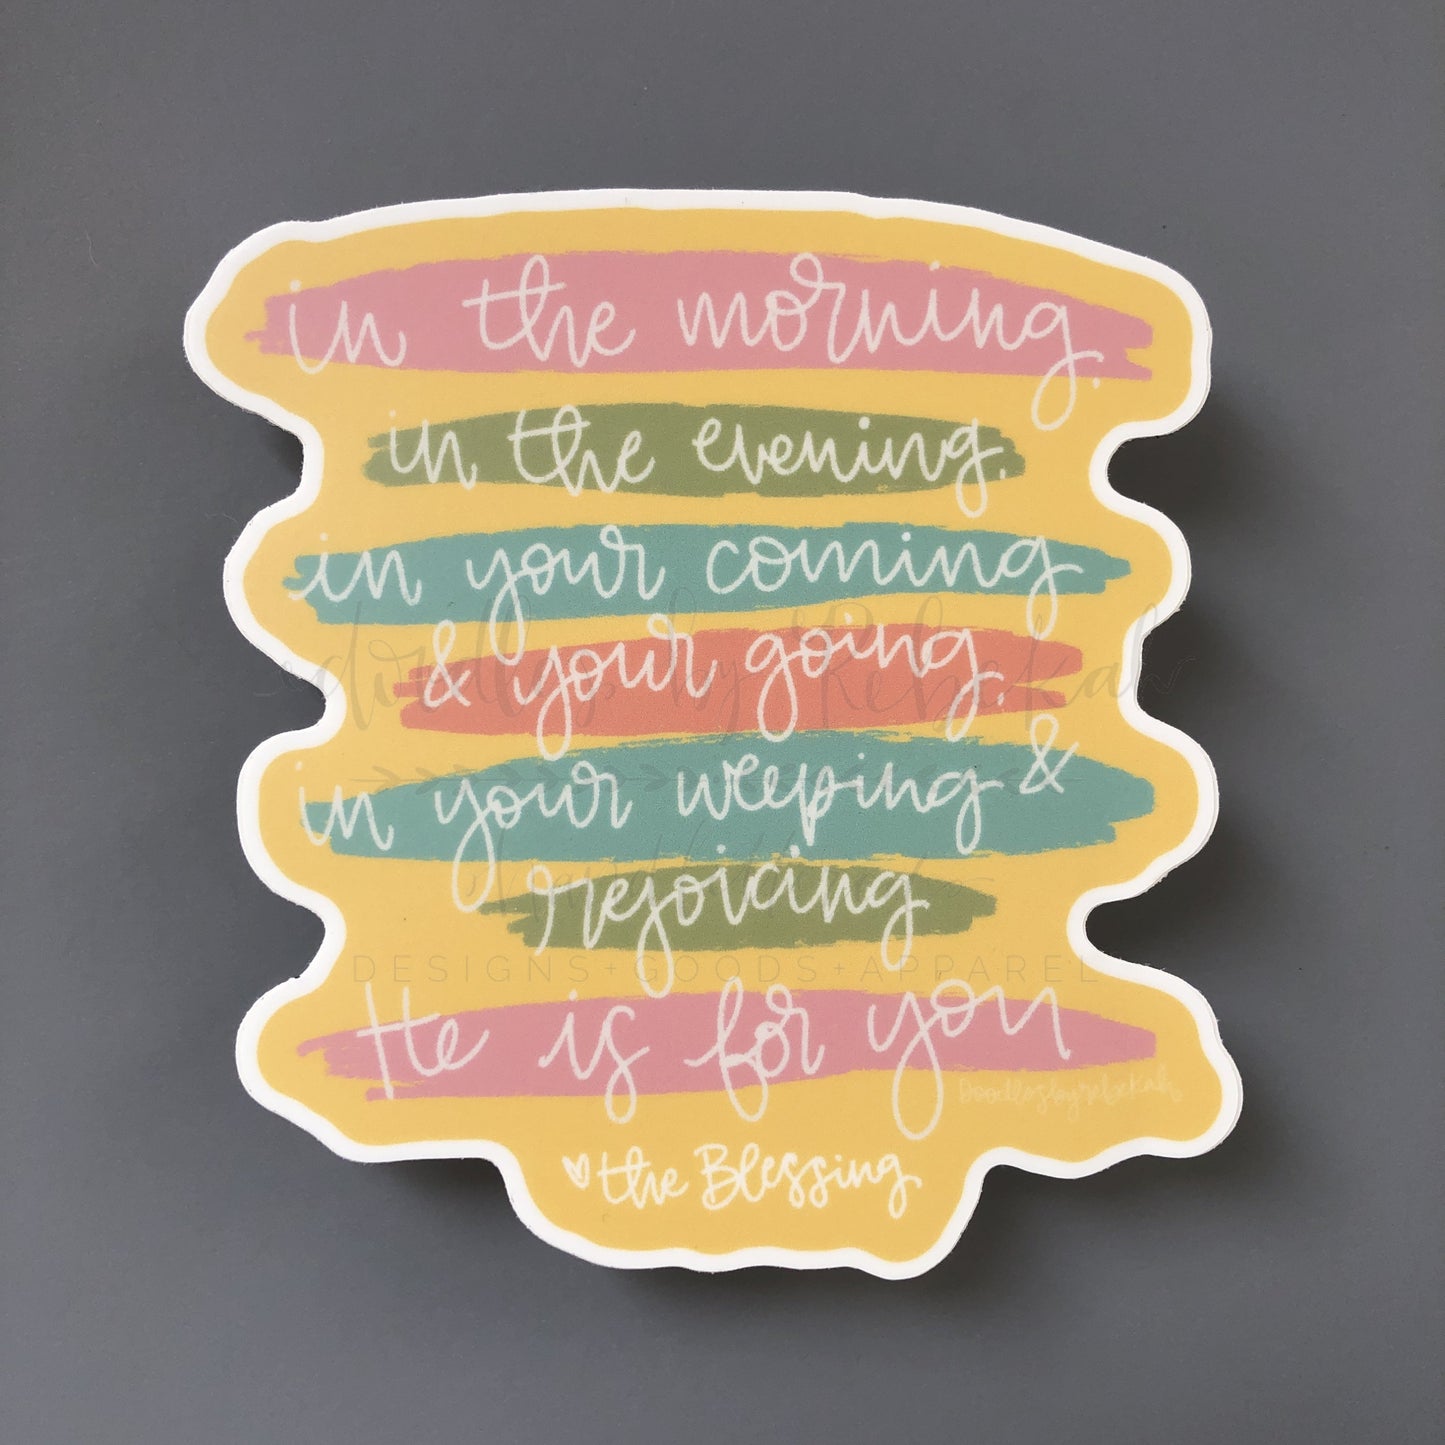 in the morning,
in the evening,
in your coming
& your going,
in your weeping &
rejoicing
He is for you
Doodlesbyrebekah
the Blessing
doodles by Rebekah
DESIGNS+GOODS+APPAREL